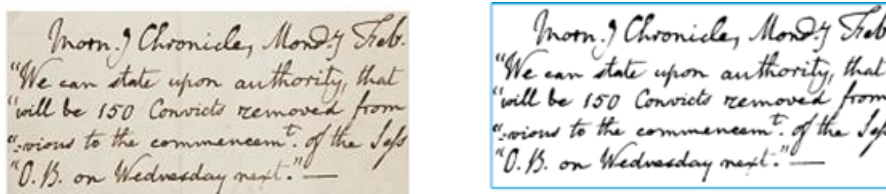 Morn.g Chronicle, Mond.y Feb.
"We can state upon authority, that
"will be 150 Convicts removed from
"-vious to the commencemt. of the Sess
"O.B. on Wednesday next." —
Morn.g Chronicle, Mond.y Feb
"We can state upon authority, that
"will be 150 Convicts removed from
"-vious to the commencemt. of the Sess
"O.B. on Wednesday next." —